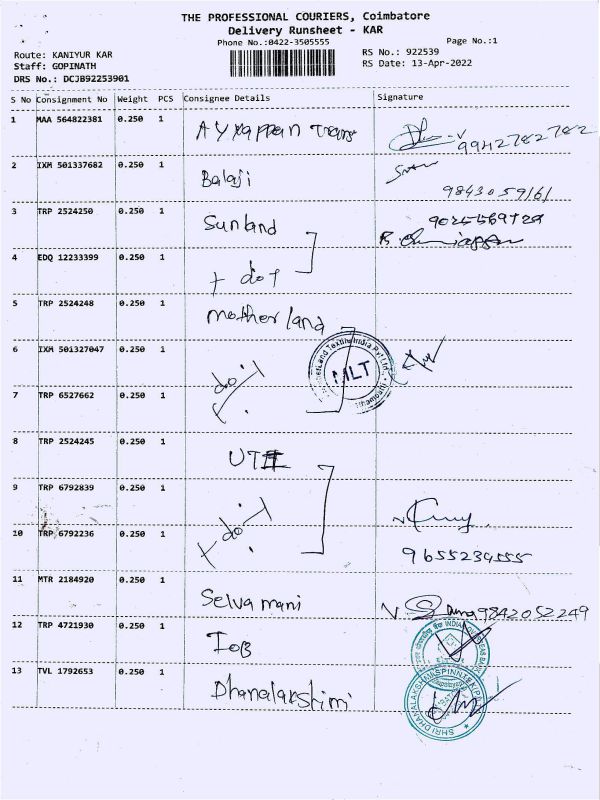 THE PROFESSIONAL COURIERS, Coimbatore
Delivery Runsheet - KAR
Phone No.:0422-3505555
Page No.:1
Route: KANIYUR KAR
RS No.: 922539
Staff: GOPINATH
RS Date: 13-Apr-2022
DRS No.: DCJB92253901
S No Consignment No Weight PCS Consignee Details Signature
1 MAA 564822381 0.250 1 Ayyappan Trans
9942782782
2 IXM 501337682 0.250 1 Balaji
9843059161
3 TRP 2524250 0.250 1 Sunland
4 EDQ 12233399 0.250 1
5 TRP 2524248 0.250 1 motherland
6 IXM 501327047 0.250 1
MLT
7 TRP 6527662 0.250 1
8 TRP 2524245 0.250 1
9 TRP 6792839 0.250 1
10 TRP 6792236 0.250 1
9655234555
11 MTR 2184920 0.250 1 Selvamani 9842052249
12 TRP 4721930 0.250 1 IOB
13 TVL 1792653 0.250 1 Dhanalakshimi